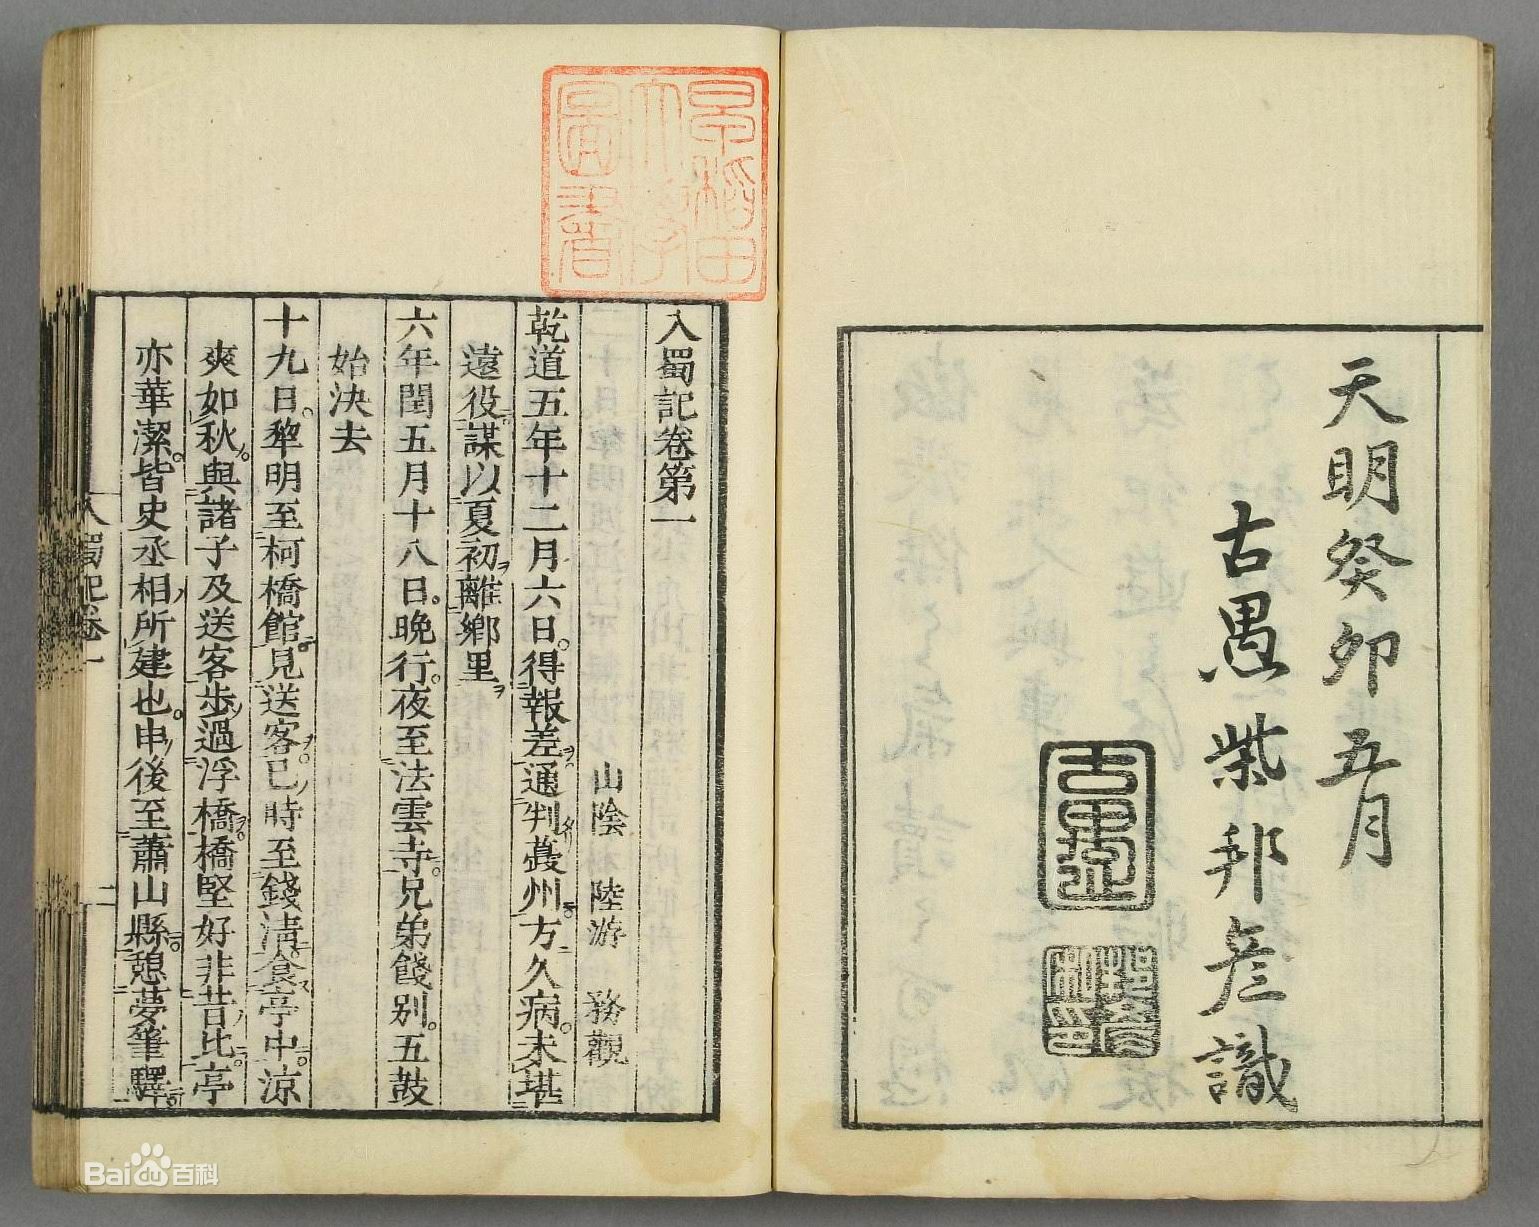 天明癸卯五月
古愚柴邦彦識
早稻田
大學
圖書
入蜀記卷第一
山陰 陸游 務觀
乾道五年十二月六日。得報差通判夔州方久病。未堪
遠役謀以夏初離鄉里
六年閏五月十八日。晚行。夜至法雲寺。兄弟餞别。五鼓
始決去
十九日。犂明至柯橋館。見送客。巳時至錢清。食亭中。涼
爽如秋與諸子及送客步過浮橋。橋堅好非昔比。亭
亦華潔。皆史丞相所建也。申後至蕭山縣。憩夢筆驛
入蜀記卷一
二
Bai du 百科